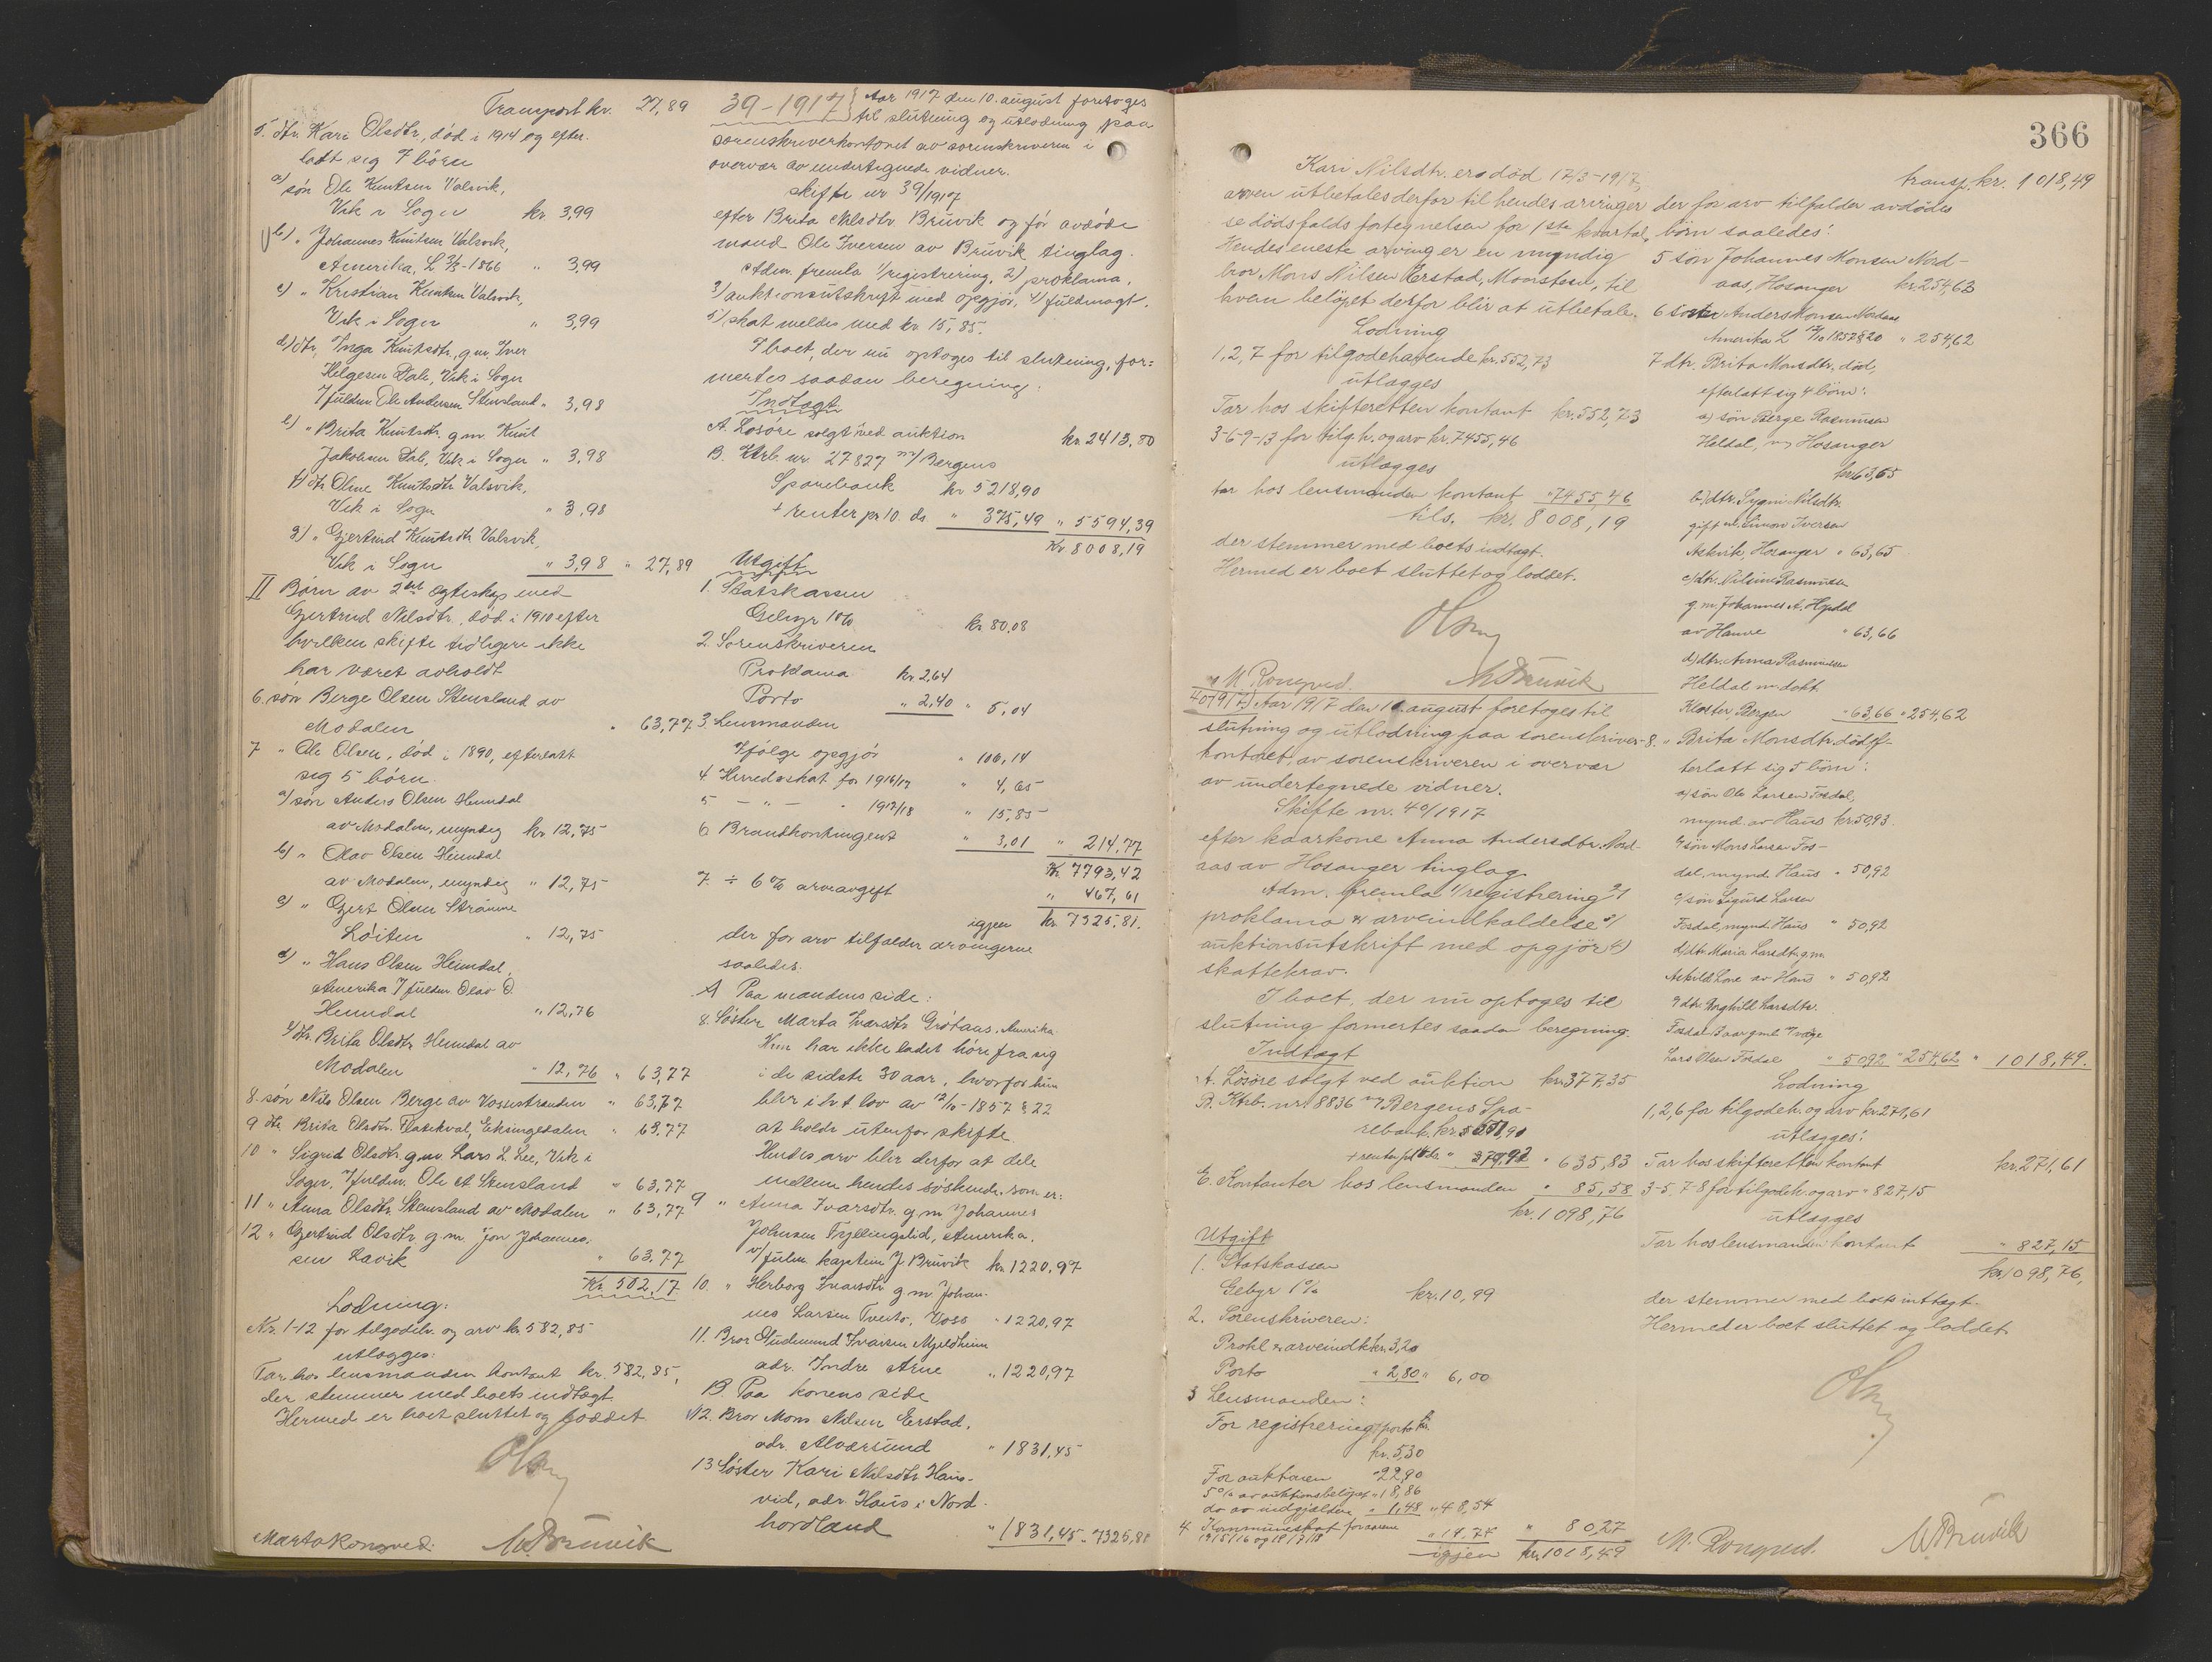 Transport kr. 27,89
5. dtr. Kari Olsdtr, död i 1914 og efter-
latt sig 7 börn
a) sön Ole Knutsen Valsvik,
Vik i Sogn kr 3,99
b) " Johannes Knutsen Valsvik,
Amerika, L 3/5-1866 " 3,99
c) " Kristian Knutsen Valsvik,
Vik i Sogn " 3,99
d) dtr, Inga Knutsdtr, g.m. Iver
Helgesen Dale, Vik i Sogn
7 fuldm. Ole Andersen Stensland " 3,98
e) " Brita Knutsdtr. g.m. Knut
Jakobsen Dale, Vik i Sogn " 3,98
f) dtr Oline Knutsdtr Valsvik,
Vik i Sogn " 3,98
g) " Gjertrud Knutsdtr Valsvik,
Vik i Sogn " 3,98 " 27,89
II Börn av 2det egteskap med
Gjertrud Nilsdtr, död i 1910 efter
hvilken skifte tidligere ikke
har været avholdt
6. sön Berge Olsen Stensland av
Modalen " 63,77
7 " Ole Olsen, död i 1890, efterlatt
sig 5 börn.
a) sön Anders Olsen Heimdal
av Modalen, myndig kr 12,75
b) " Olav Olsen Heimdal
av Modalen, myndig " 12,75
c) " Gjert Olsen Straume
Löiten " 12,75
d) " Hans Olsen Heimdal,
Amerika 7 fuldm. Olav O.
Heimdal " 12,76
e) dtr. Brita Olsdtr Heimdal av
Modalen " 12,76 " 63,77
8. sön Nils Olsen Berge av Vossestranden " 63,77
9 dtr Brita Olsdtr. Flatekval, Eksingedalen " 63,77
10 " Sigrid Olsdtr g.m. Lars L. Lee, Vik i
Sogn, 7 fuldm. Ole A Stensland " 63,77
11 " Anna Olsdtr Stensland av Modalen " 63,77
12 " Gjertrud Olsdtr g.m. Jon Johannes-
sen Lavik " 63,77
Kr. 502,17
Lodning:
Nr. 1-12 for tilgodeh. og arv kr 582,85
utlægges:
Tar hos lensmanden kontant kr. 582,85,
der stemmer med boets indtægt.
Hermed er boet sluttet og loddet
Marta Rongved. M. Bruvik
39-1917 } Aar 1917 den 10. august foretoges
til slutning og utlodning paa
sorenskriverkontoret av sorenskriveren i
overvær av undertegnede vidner.
skifte nr 39/1917
efter Brita Nilsdtr Bruvik og før avdöde
mand Ole Iversen av Bruvik tinglag.
Adm. fremla 1/registrering, 2) proklama,
3) auktionsutskrift med opgjör, 4) fuldmagt,
5) skat meldes med kr 15,85.
I boet, der nu optoges til slutning, for-
mertes saadan beregning:
Indtægt
A. Lösöre solgt ved auktion kr 2413,80
B. Ktrb. nr. 27827 m/ Bergens
Sparebank kr 5218,90
+ renter pr 10. ds. " 375,49 " 5594,39
Kr 8008,19
Utgift
1. Statskassen
Gebyr 1% kr. 80,08
2. Sorenskriveren
Proklama kr 2,64
Porto " 2,40 " 5,04
3. Lensmanden
Ifölge opgjör " 106,14
4 Herredsskat for 1916/17 " 4,65
5 - " - " 1917/18 " 15,85
6 Brandkontingent " 3,01 " 214,77
Kr. 7793,42
7. ÷ 6% arveavgift " 467,61
igjen kr. 7325,81.
der for arv tilfalder arvingerne
saaledes:
A Paa mandens side:
8. Söster Marta Ivarsdtr Grötaus, Amerika.
Hun har ikke ladet höre fra sig
i de sidste 30 aar, hvorfor hun
blir i h t lov av 12/10-1857 § 22
at holde utenfor skifte.
Hendes arv blir derfor at dele
mellem hendes söskende, som er:
9 " Anna Ivarsdtr. g m Johannes
Johnsen Fyllingslid, Amerika,
v/ fuldm. kaptein J. Bruvik kr. 1220,97
10. " Herborg Ivarsdtr g m Johan-
nes Larsen Tveite, Voss " 1220,97
11. Bror Gudmund Ivarsen Mjeldheim
adr. Indre Arne " 1220,97
B. Paa konens side
12. Bror Mons Nilsen Eerstad,
adr. Alversund " 1831,45
13 Söster Kari Nilsdtr Haus-
vid, adr. Haus i Nord-
hordland " 1831,45 " 7325,81
366
Kari Nilsdtr. er död 17/3-1917,
arven utbetales derfor til hendes arvinger
se dödsfalds fortegnelsen for 1ste kvartal,
Hendes eneste arving er en myndig
bror Mons Nilsen Eerstad, Moonsteen, til
hvem belöpet derfor blir at utbetale.
Lodning
1, 2, 7 for tilgodehavende kr. 552,73
utlægges
Tar hos skifteretten kontant kr. 552,73
3-6-9-13 for tilgh. og arv kr. 7455,46
utlægges
tar hos lensmanden kontant " 7455,46
tils. kr. 8008,19
der stemmer med boets indtægt.
Hermed er boet sluttet og loddet.
M Rongved. M Bruvik
40/1917) Aar 1917 den 10. august foretoges til
slutning og utlodning paa sorenskriver-
kontoret, av sorenskriveren i overvær
av undertegnede vidner.
Skifte nr. 40/1917
efter kaarkone Anna Andersdtr. Nord-
aas av Hosanger tinglag.
Adm. fremla 1/registrering 2/
proklama & arveindkaldelse 3/
auktionsutskrift med opgjör, 4)
skattekrav.
I boet, der nu optoges til
slutning formertes saadan beregning.
Indtægt
A. Lösöre solgt ved auktion kr. 377,35
B. Ktrb. nr. 8836 m/ Bergens Spa-
rebank, kr.
+ renter pr 10 ds. " " 635,83
E. Kontanter hos lensmanden " 85,58
kr. 1098,76
Utgift
1. Statskassen
Gebyr 1% kr. 10,99
2. Sorenskriveren:
Prokl & arveindk kr. 3,20
Porto " 2,80 " 6,00
3 Lensmanden:
For registrering, porto &.
kr. 5,30
For auktionen " 22,90
5% av auktionsbelöpet " 18,86
do av indgjælden " 1,48 " 48,54
4. Kommuneskat for aarene
1915/16 og 1917/18 " 14,74 " 80,27
igjen kr. 1018,49
transp. kr. 1018,49
der for arv tilfalder avdödes
börn saaledes:
5 sön Johannes Monsen Nord-
aas, Hosanger kr. 254,63
6 sön Anders Monsen Nordaas
Amerika L 12/10 1857 § 20 " 254,62
7 dtr. Brita Monsdtr. död,
efterlatt sig 4 börn:
a) sön Berge Rasmussen
Heldal, Hosanger
kr. 63,65
b) dtr. Sygni Nilsdtr.
gift m. Simon Iversen
Askvik, Hosanger " 63,65
c) dtr. Nilsine Rasmussen
g. m. Johannes A. Hopdal
av Hamre " 63,66
d) dtr. Anna Rasmussen
Heldal
Kloster, Bergen " 63,66 " 254,62
8. " Brita Monsdtr. död, ef-
terlatt sig 5 börn:
a) sön Ole Larsen Fosdal,
mynd. av Haus kr. 50,93
b) sön Mons Larsen Fos-
dal, mynd. Haus " 50,92
c) sön Sigurd Larsen
Fosdal, mynd. Haus " 50,92
d) dtr. Maria Larsdtr. g.m.
Askild Lone av Haus " 50,92
e) dtr. Borghild Larsdtr.
Fosdal aar gml. v/ verge
Lars Olsen Fosdal " 50,92 " 254,62 " 1018,49.
Lodning
1, 2, 6 for tilgodeh. og arv kr. 271,61
utlægges:
Tar hos skifteretten kontant kr. 271,61
3-5, 7-8 for tilgodeh. og arv " 827,15
utlægges
Tar hos lensmanden kontant " 827,15
kr. 1098,76,
der stemmer med boets inttægt.
Hermed er boet sluttet og loddet
M. Rongved. M Bruvik